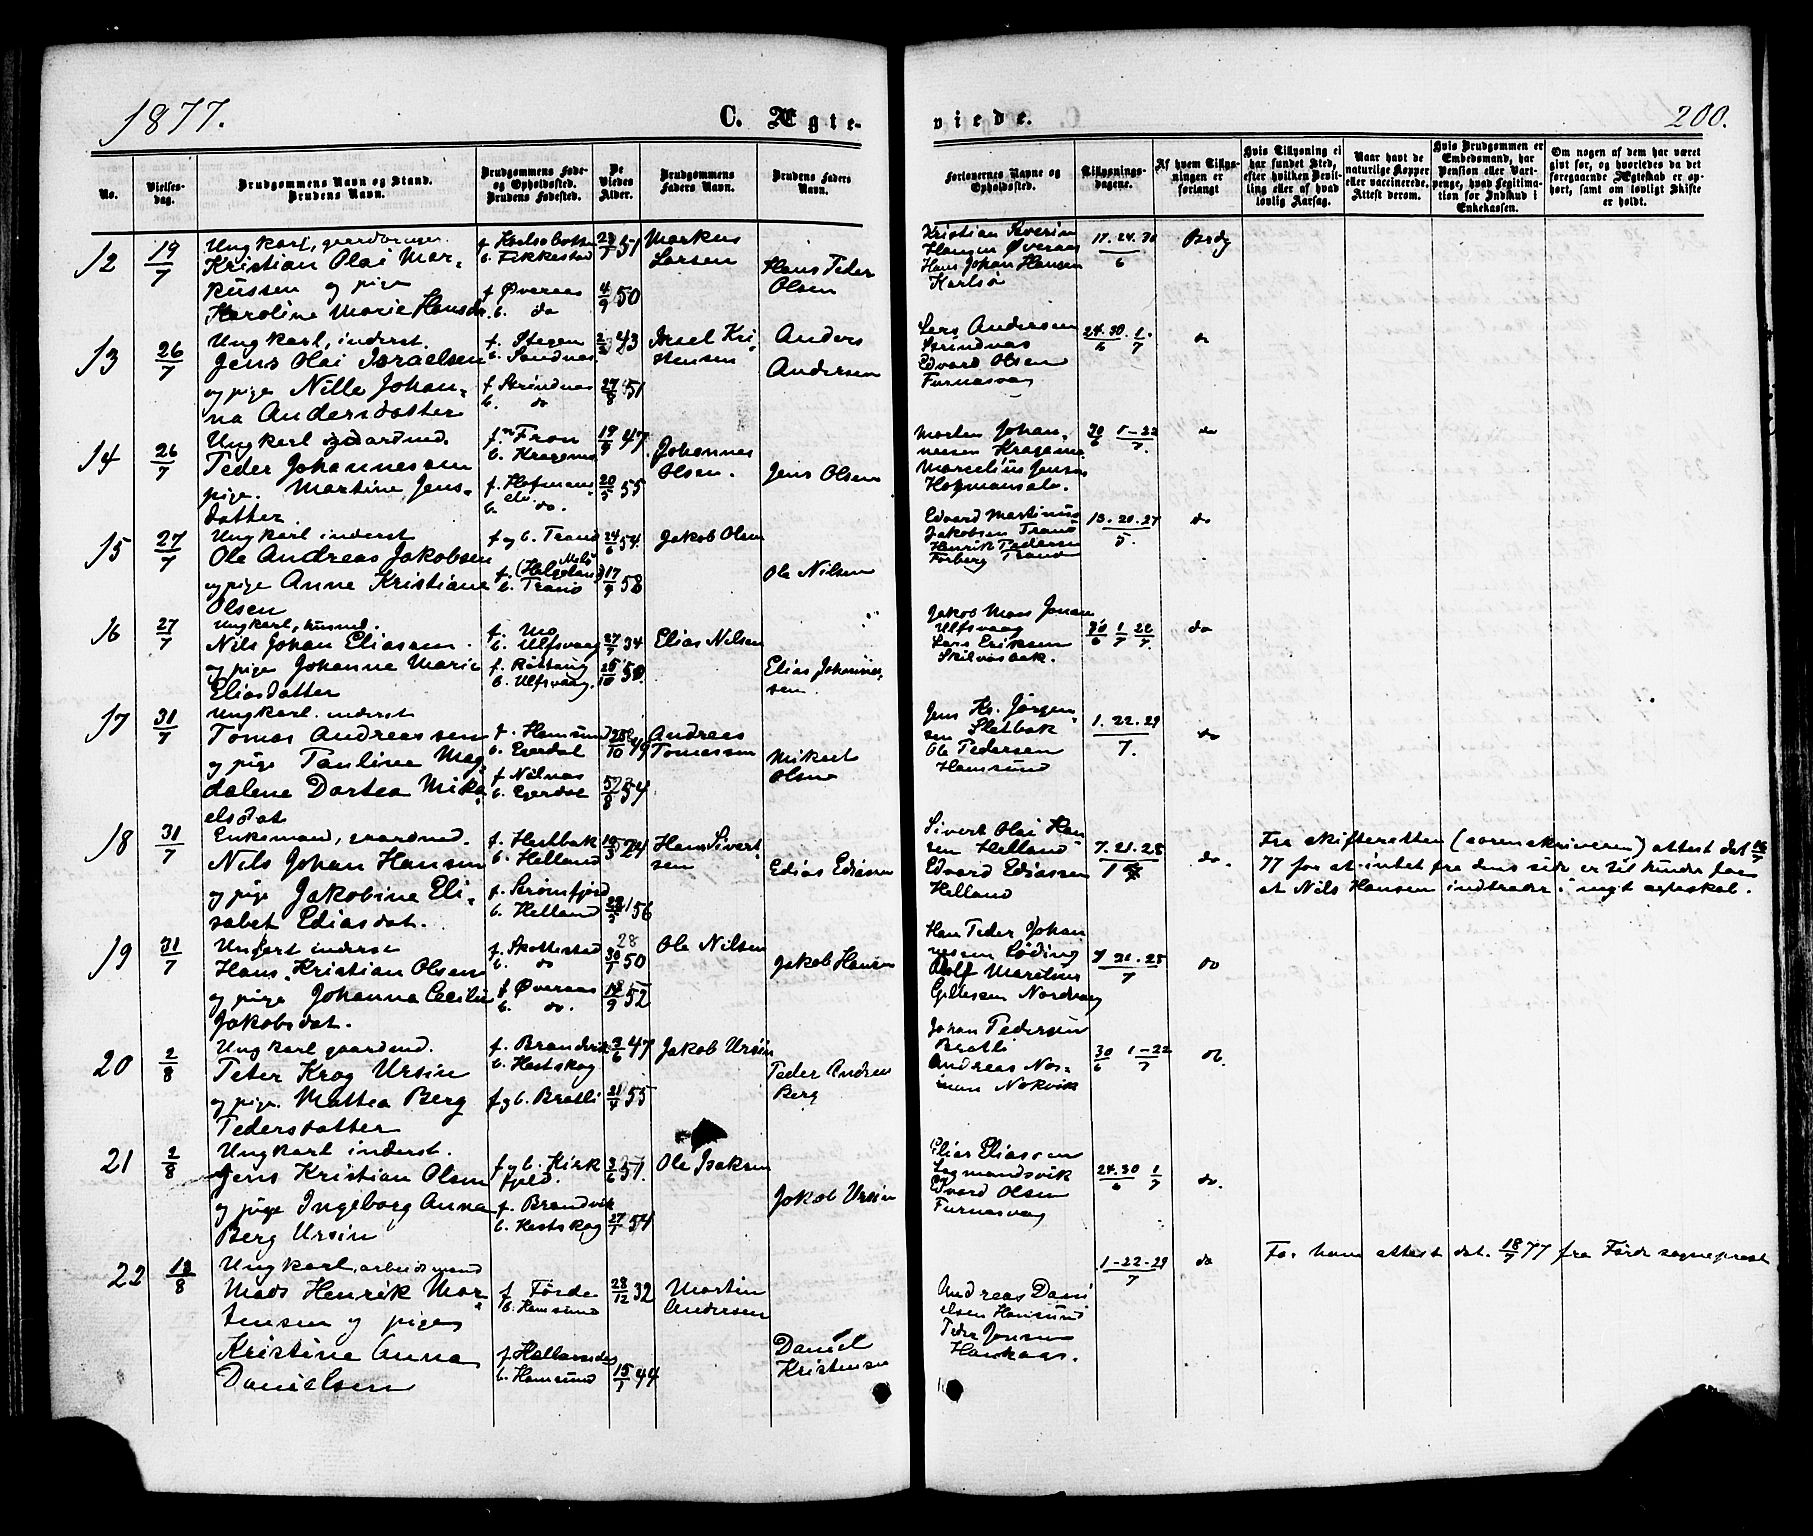 1877.
C. Ægte-
viede.
200.
No.
Vielses-
dag.
Brudgommens Navn og Stand.
Brudens Navn.
Brudgommens Føde-
og Opholdssted.
Brudens Fødested.
De
Viedes
Alder.
Brudgommens
Faders Navn.
Brudens Faders
Navn.
Forlovernes Navne og
Opholdssted.
Tillysnings-
dagene.
Af hvem Tillys-
ningen er
forlangt.
Hvis Tillysning ei
har fundet Sted,
efter hvilken Bevil-
ling eller af hvad
lovlig Aarsag.
Naar havt de
naturlige Kopper
eller vaccinerede.
Attest derom.
Hvis Brudgommen er
Embedsmand, har
Pension eller Vart-
penge, hvad Legitima-
tion for Indskud i
Enkekassen.
Om nogen af dem har været
gift før, og hvorledes da det
foregaaende Ægteskab er op-
hørt, samt om lovligt Skifte
er holdt.
12
19/7
Ungkarl, gaardbruger
Kristian Olai Mar-
kussen og pige
Karoline Marie Hansdr.
f. Karlsøbotn
b. Fikkestad
f. Øveraas
b. do
23/7 51
4/9 50
Markus
Larsen
Hans Peder
Olsen
Kristian Severin
Hansen Øveraas
Hans Johan Hansen
Karlsø
17. 24. 30
6
Brdg
13
26/7
Ungkarl, inderst.
Jens Olai Israelsen
og pige Nille Johan-
na Andersdatter
f. Stegen
b. Sandnes
f. Strindnas
b. do
43
27/8 51
Israel Kri-
stensen
Anders
Andersen
Lars Andersen
Strindnas
Edvard Olsen
Furnesvag
24.30. 1.
6 7
do
14
26/7
Ungkarl gaardmd.
Peder Johannessen
pige. Martine Jens-
datter.
f. Fron
b. Kragenes
f. Hofmans-
elv.
b. do.
19/9 47
20/5 55
Johannes
Olsen.
Jens Olsen
Morten Johan-
nesen Kragenes
Marcelius Jensen
Hofmanselv.
30/6 1-22/7.
do
15
27/7
Ungkarl inderst
Ole Andreas Jakobsen
og pige Anne Kristiane
Olsen
f. og b. Tranø
f. (Helgeland)
b. Tranø
24/6 54
17/9 58
Jakob Olsen
Ole Nilsen
Edvard Martinus
Jakobsen Tranø
Henrik Pedersen
Forberg Tranø
13. 20. 27
5.
do
16
27/7
Ungkarl, husmd.
Nils Johan Eliassen.
og pige Johanne Marie
Eliasdatter
f. Mo
b. Ulfsvaag
f. Røttang
b. Ulfsvaag.
27/7 34
25/10 50.
Elias Nilsen
Elias Johannes-
sen.
Jakob Mons Jonsen
Ulfsvaag
Lars Eriksen
Skilvasbak.
30/6 1/7 22/7.
do
17
31/7
Ungkarl. inderst
Tomas Andreassen
og pige Pauline Mag-
dalene Dortea Mika-
elsdat
f. Hamsund
b. Egerdal
f. Nilnas
b. Egerdal
28/10 49
5/8 54
Andreas
Tomassen
Mikael
Olsen
Jens Kr. Jørgen-
sen Sletbak
Ole Pedersen
Hamsund
1. 22. 29
7.
do
18
31/7
Enkemand, gaardmd.
Nils Johan Hansen
og pige Jakobine Eli-
sabet Ediasdat.
f. Hestbak
b. Helland
f. Strømfjord
b. Helland
24
28/5 56
Hans Sivert-
sen
Edias Ediassen
Sivert Olai Han-
sen Helland
Edvard Ediassen
Helland
7. 21. 28
do.
Fra skifteretten (sorenskriveren) attest dat. 77 for at intet fra dens side er til hinder for
at Nils Hansen indtræder i nyt ægteskab.
19
31/7
Ungkarl inderst
Hans Kristian Olsen
og pige Johanna Cecilie
Jakobsdat.
f. Skottestad
b. do
f. Øveraas
b. do.
28
30/7 50
18/9 52
Ole Nilsen
Jakob Hansen
Hans Peder Johan-
nesen Løding
Rolf Marelius
Gjellesen Nordvag
7 21. 28
7
do
20
2/8
Ungkarl gaardmd.
Peter Krog Ursin
og pige. Mattea Berg
Pedersdatter
f. Brandvik
b. Hestskog
f og b. Bratli
2/6 47
21/4 55
Jakob Ursin
Peder Andreas
Berg
Johan Pedersen
Bratli
Andreas Nor-
man Nokvik
30/6 1-22/7
do.
21
2/8
Ungkarl inderst.
Jens Kristian Olsen
og pige Ingeborg Anna
Berg Ursin
f og b. Kirk
fjeld.
f. Brandvik
b. Hestskog
3/6 51.
27/1 54
Ole Isaksen
Jakob Ursin
Elias Eliassen
Lagmandsvik
Edvard Olsen
Furnesvag
24.30 1
6 7
do.
22
12/8
Ungkarl, arbeidsmand
Mads Henrik Mor-
tensen og pige
Kristine Anna
Danielsen
f. Førde
b. Hamsund
f. Hellandes
b. Hamsund
28/12 32
15/1 44
Martin
Andersen
Daniel
Kristensen
Andreas Dani-
elsen Hamsund
Peder Jensen
Haukaas.
1-22-29
7
do
For ham attest dat. 18/7 77 fra Førde sogneprest